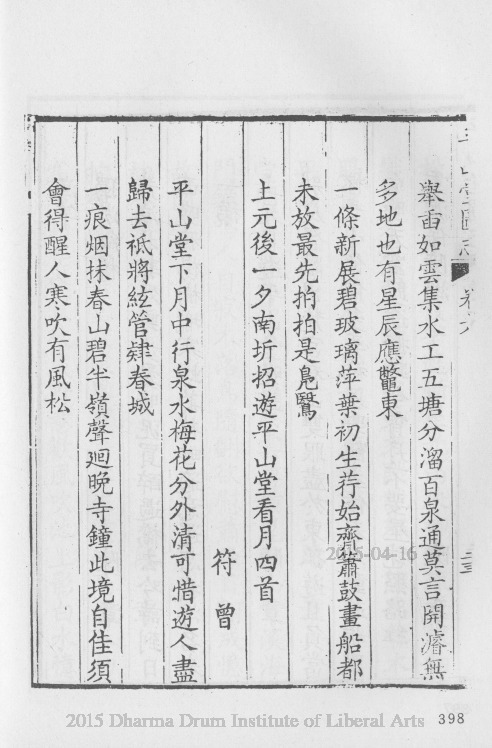 平山堂圖志 卷六
舉臿如雲集水工五塘分溜百泉通莫言開濬無
多地也有星辰應鼈東
一條新展碧玻璃萍葉初生荇始齊簫鼓畫船都
未放最先拍拍是鳧鷖
上元後一夕南圻招遊平山堂看月四首
符曾
平山堂下月中行泉水梅花分外清可惜遊人盡
歸去祗將絃管肄春城
一痕烟抹春山碧半嶺聲迴晩寺鐘此境自佳須
會得醒人寒吹有風松
2015-04-16
2015 Dharma Drum Institute of Liberal Arts 398